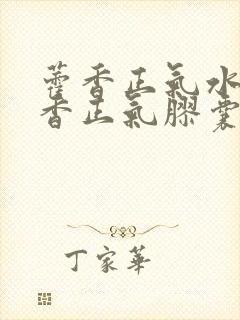 藿香正氣水
香正氣膠囊
丁家華